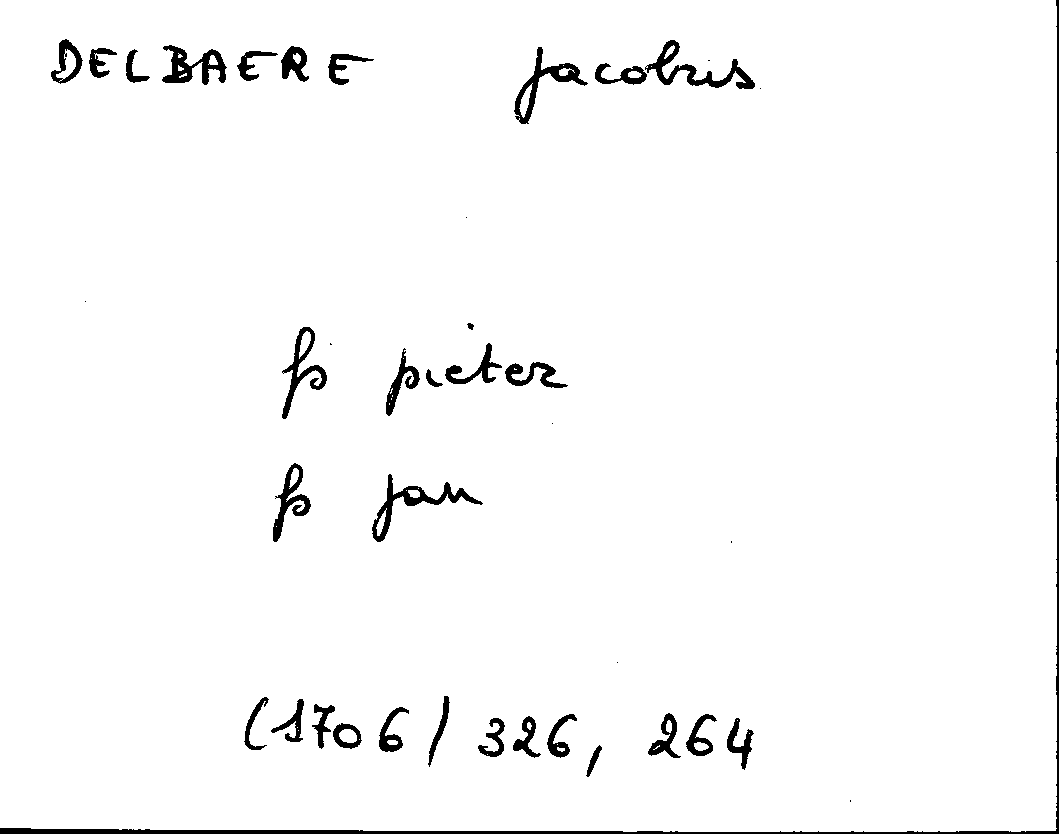 DELBAERE Jacobus
fs pieter
fs jan
(1706/ 326, 264